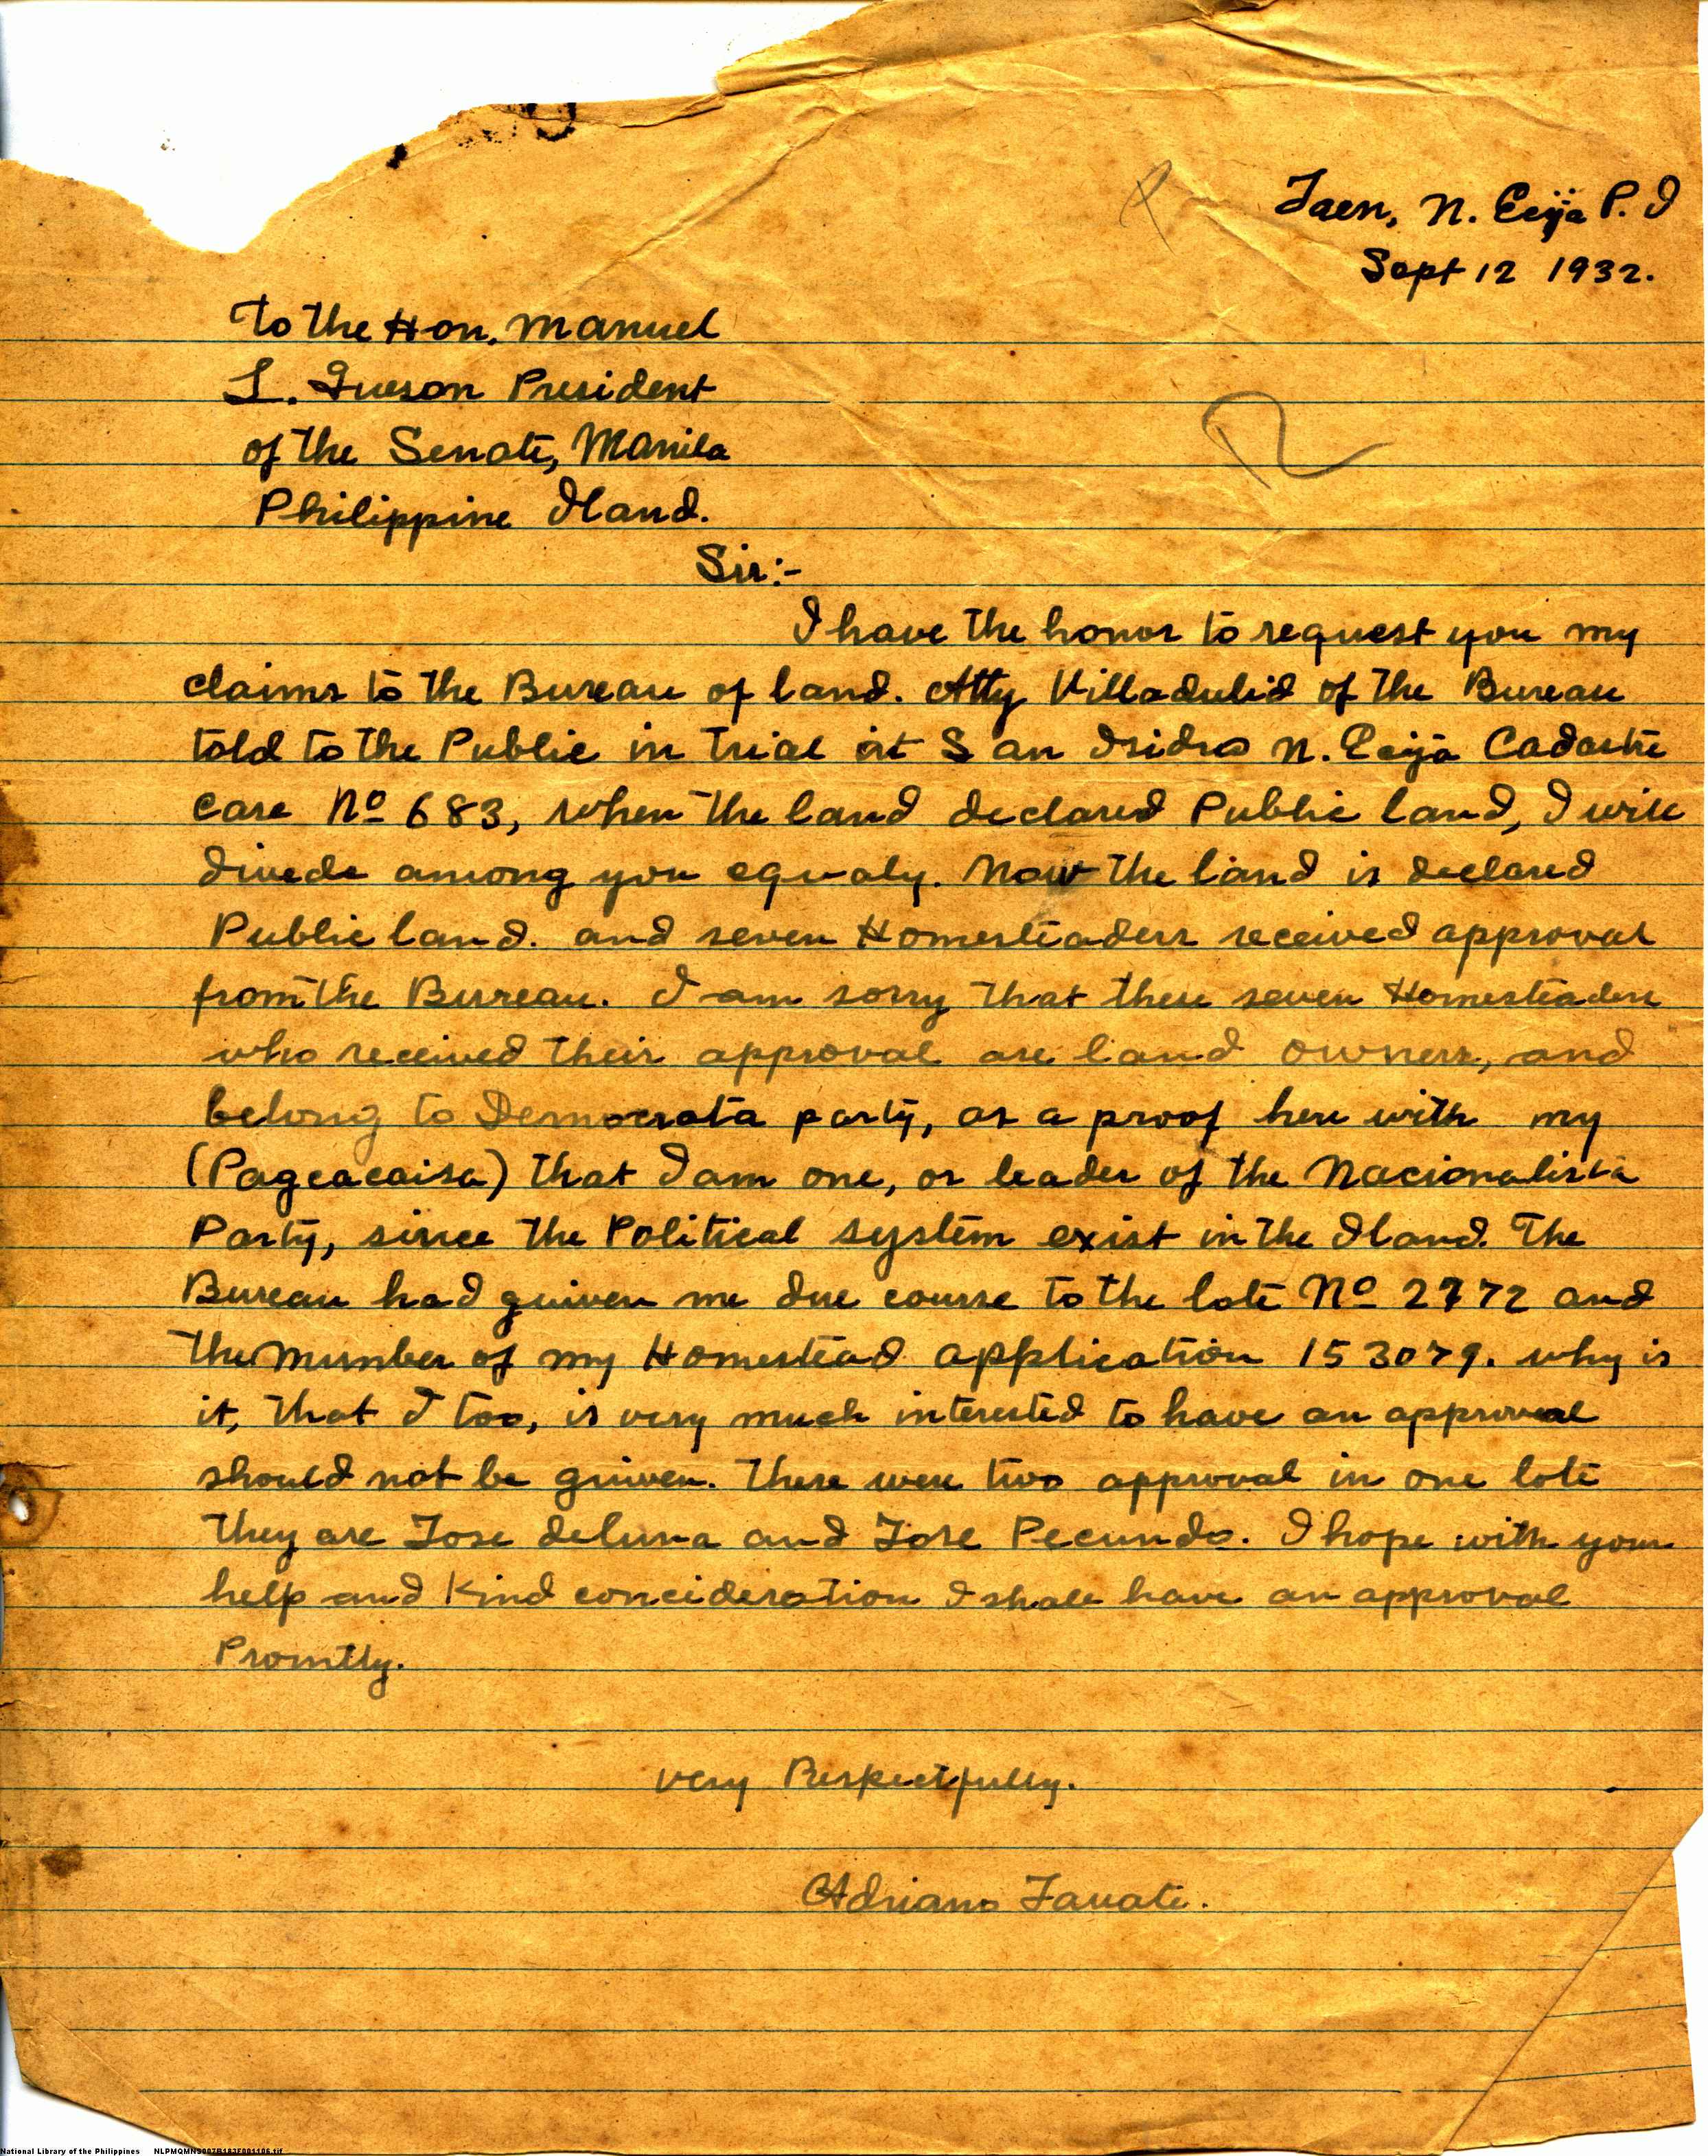 Jaen, N. Ecija P. I
Sept 12 1932.
To the Hon. Manuel
L. Queson President
of the Senate, Manila
Philippine Iland.
Sir:-
I have the honor to request you my
claims to the Bureau of land. Atty Villadulid of the Bureau
told to the Public in trial at San Isidro N. Ecija Cadastre
case No 683, when the land declared Public land, I will
divede among you equaly. Now the land is declared
Public land. and seven Homesteaders received approval
from the Bureau. I am sorry that these seven Homesteaders
who received their approval are land owners, and
belong to Democrata party, as a proof here with my
(Pagcacaisa) that I am one, or leader of the Nacionalista
Party, since the Political system exist in the Iland. The
Bureau had guiven me due course to the lote No 2772 and
the number of my Homestead application 153079. why is
it, that I too, is very much interested to have an approval
should not be guiven. There were two approval in one lote
They are Jose deluna and Jose Pecundo. I hope with your
help and Kind concideration I shall have an approval
Promtly.
very Respectfully.
Adriano
National Library of the Philippines NLPMQMNS007B183F001106.tif